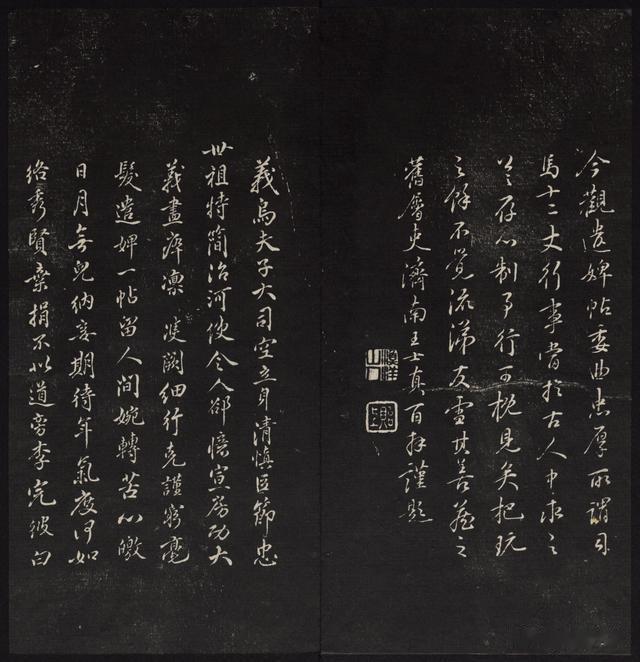 今觀遣婢帖委曲忠厚所謂司
馬十二丈行事當於古人中求之
存心制行可概見矣把玩
之餘不覺流涕友雪其善藏之
舊屬吏濟南王士真百拜謹題
義烏夫子大司空立身清慎臣節忠
世祖特簡治河使令人郤憶宣房功大
義盡瘁凛闕細行克謹窮毫
髮遣婢一帖留人間婉轉苦心皦
日月無兒納妾期待年氣度何如
絡秀賢棄捐不以道旁李完彼白